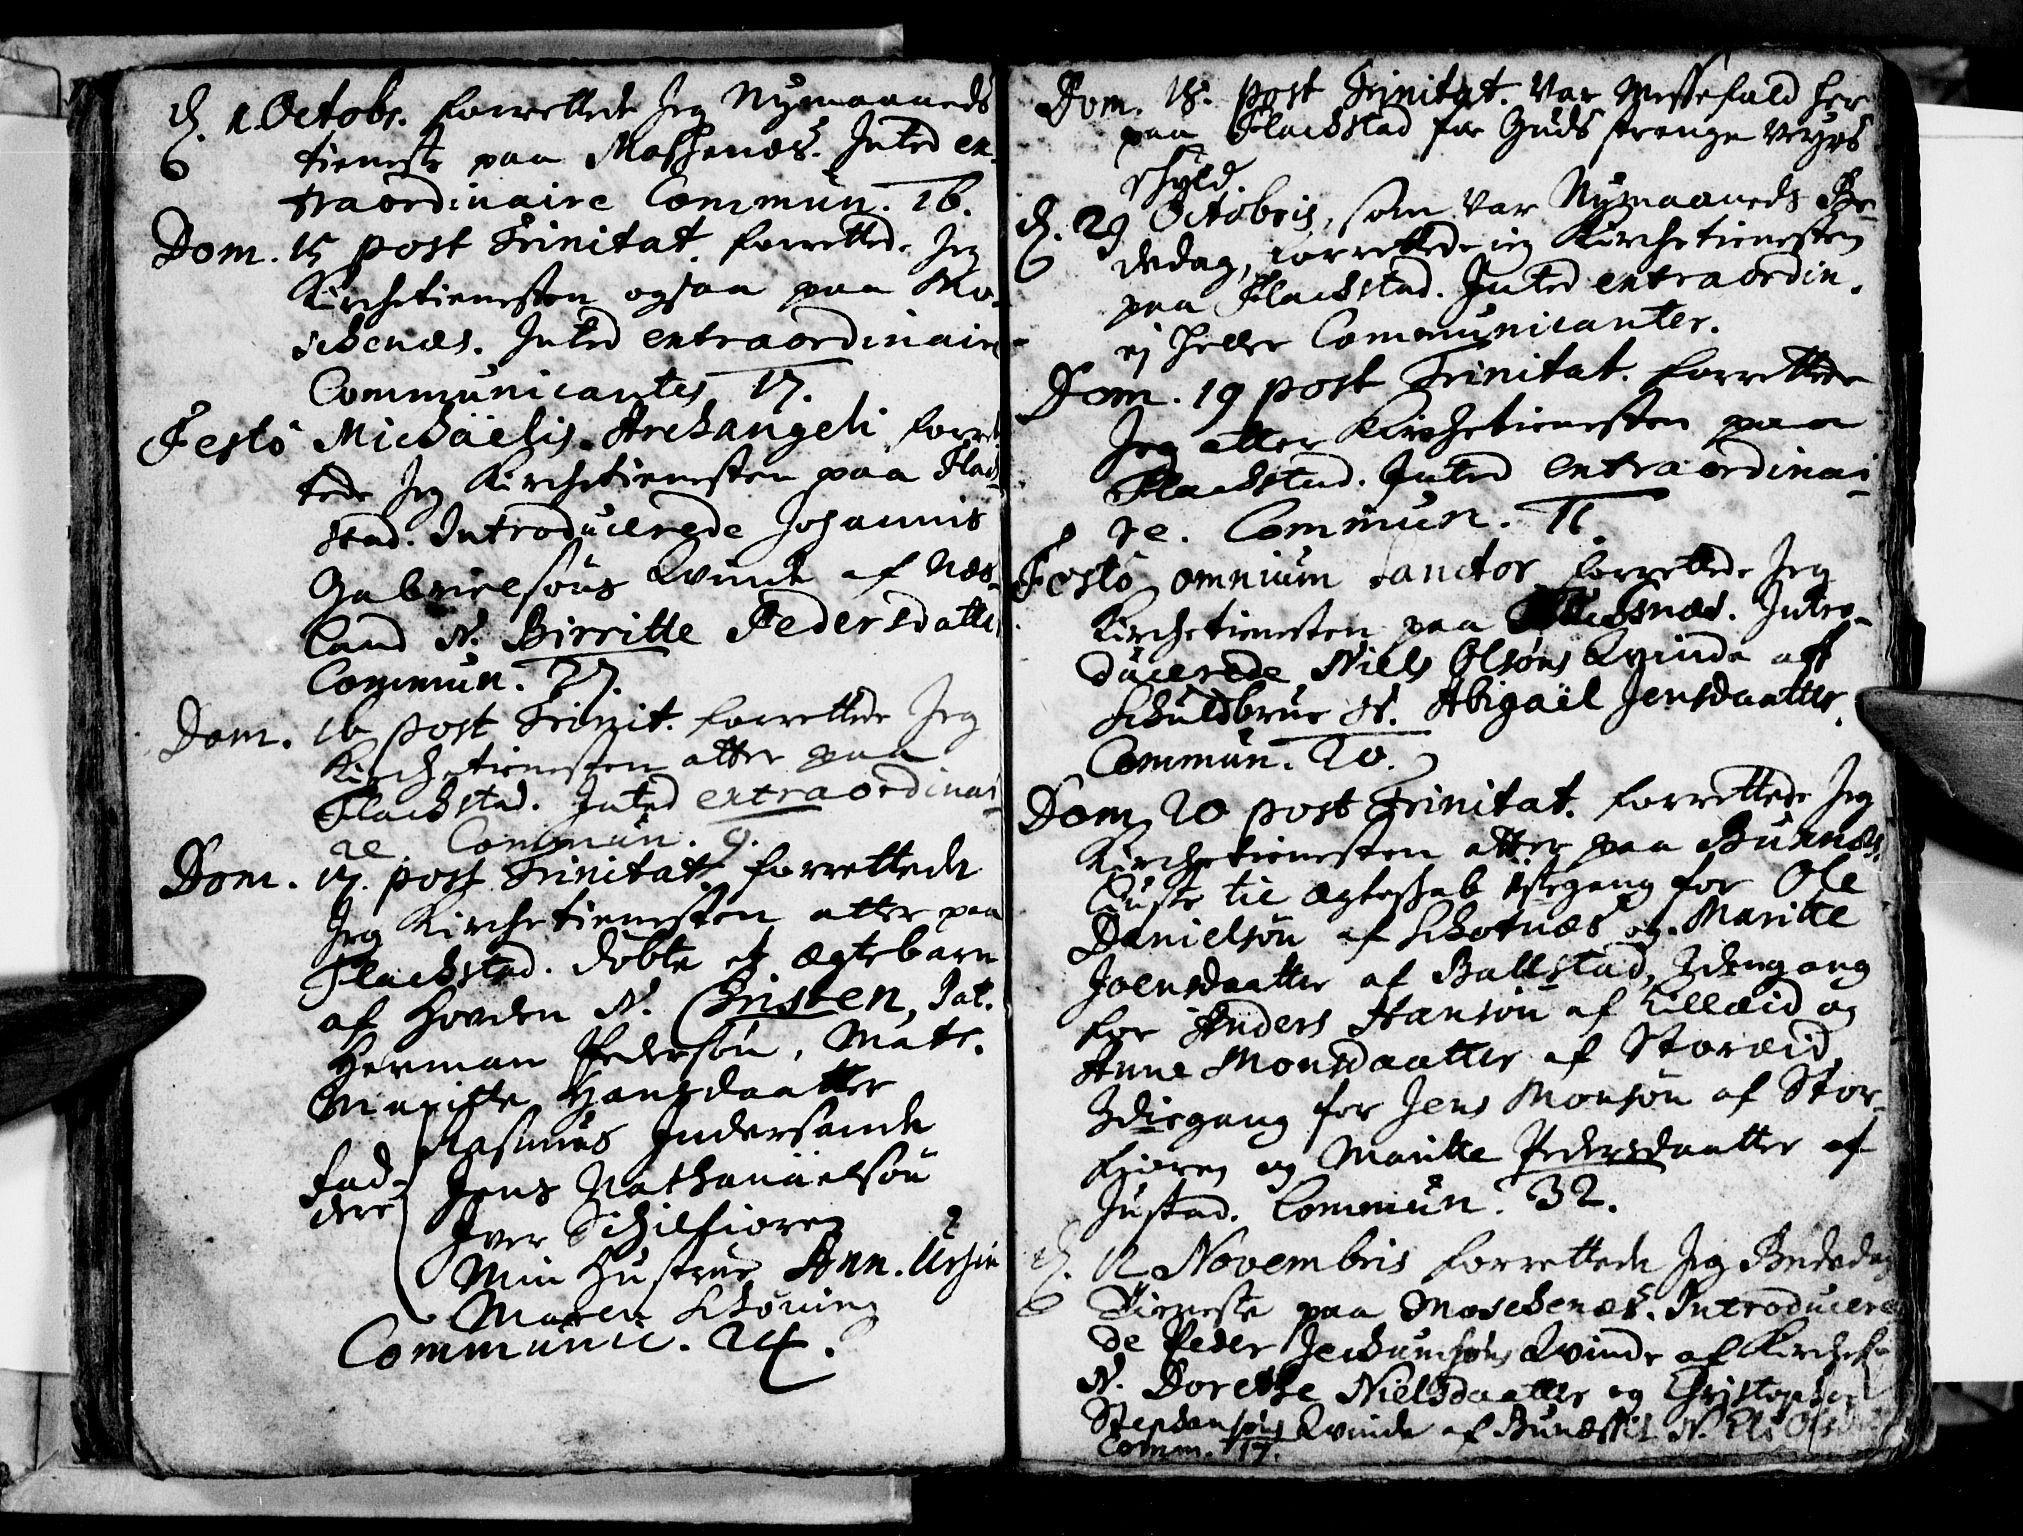 d. 1. Octobr. forrettede Jeg Nymaaneds
tieneste paa Moschenæs. Inted ex-
traordinaire Commun. 16.
Dom. 15 post Trinitat. forrettede Jeg
Kirchetienesten ogsaa paa Mo-
schenæs. Inted extraordinaire
Communicantes 17.
Festo Michaëlis Archangeli forret-
tede Jeg Kirchetienesten paa Flach-
stad. Introducerede Johannis
Gabrielsøns Qvinde af Næs-
land N. Birritte Pedersdatter
Commun. 27.
Dom. 16 post Trinit. forrettede Jeg
Kirchetienesten atter paa
Flackstad. Inted extraordinai-
re Commun. 9.
Dom. 17. post Trinitat. forrettede
Jeg Kirchetienesten atter paa
Flackstad. døbte et ægtebarn
af Hovden N. Christen, Pat.
Herman Pedersøn, Matr.
Maritte Hansdaatter
Rasmus Indersande
Fad- Jens Nathanäelsøn
dere Iver Schilfioren
Min Hustrue Ann. Ursin
Maren Schøning
Communic. 24.
Dom. 18. post Trinitat. var Messefald her
paa Flackstad for Guds strenge Veyrs
skyld.
d. 29 Octobris, som var Nymaaneds Be-
dedag, forrettede jeg Kirchetienesten
paa Flackstad. Inted extraordin.
ej heller Communicanter.
Dom. 19 post Trinitat. forrettede
Jeg atter Kirchetienesten paa
Flackstad. Inted extraordinai-
re. Commun. 11.
Festo omnium Sanctor. forrettede Jeg
Kirchetienesten paa. Intro-
ducerede Niels Olsøns Qvinde aff
Schuldbrue N. Abigaël Jensdaatter.
Commun. 20.
Dom. 20 post Trinitat. forrettede Jeg
Kirchetienesten atter paa Buxnæs.
Liuste til Ægteskab 1stegang for Ole
Danielsøn af Schotnæs og Maritte
Joensdaatter af Ballstad, 2dengang
for Anders Hansøn af Lilleeid og
Anne Monsdaatter af Storeeid,
3diegang for Jens Monsøn af Stor-
fioren og Maritte Pedersdaatter af
Justad. Commun. 32.
d. 12 Novembris forrettede Jeg Bededag
Tieneste paa Moschenæs. Introducere-
de Peder Qvinde af
N. Dorethe Nielsdaatter og Christopher
Stephansøns Qvinde af N. Els
Comm. 17.